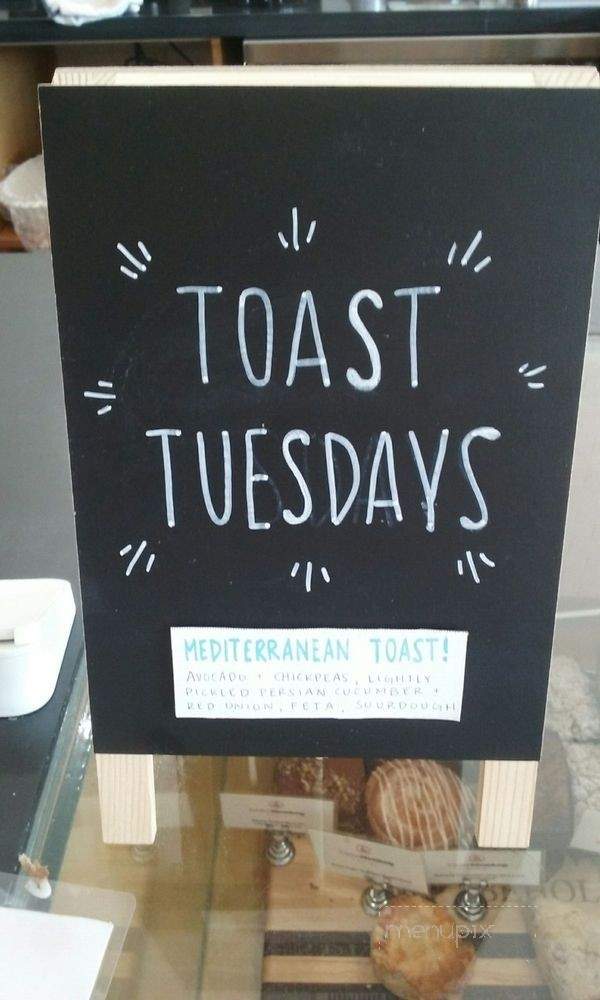 TOAST
TUESDAYS
MEDITERRANEAN TOAST!
AVOCADO + CHICKPEAS, LIGHTLY
PICKLED PERSIAN CUCUMBER +
RED ONION, FETA, SOURDOUGH
menupix